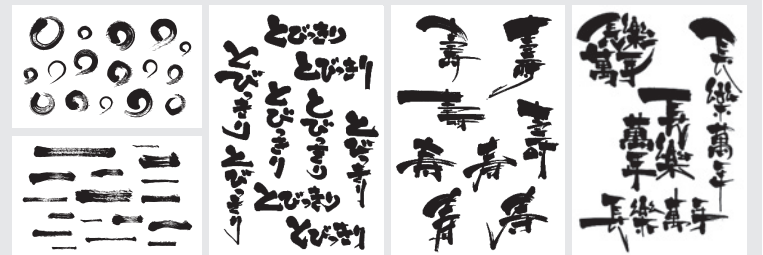 とびっきり
とびっきり
とびっきり
とびっきり
とびっきり
とびっきり
とびっきり
とびっきり
とびっきり
壽
壽
壽
壽
寿
寿
寿
寿
長樂
萬年
長樂萬年
長樂
萬年
長樂萬年